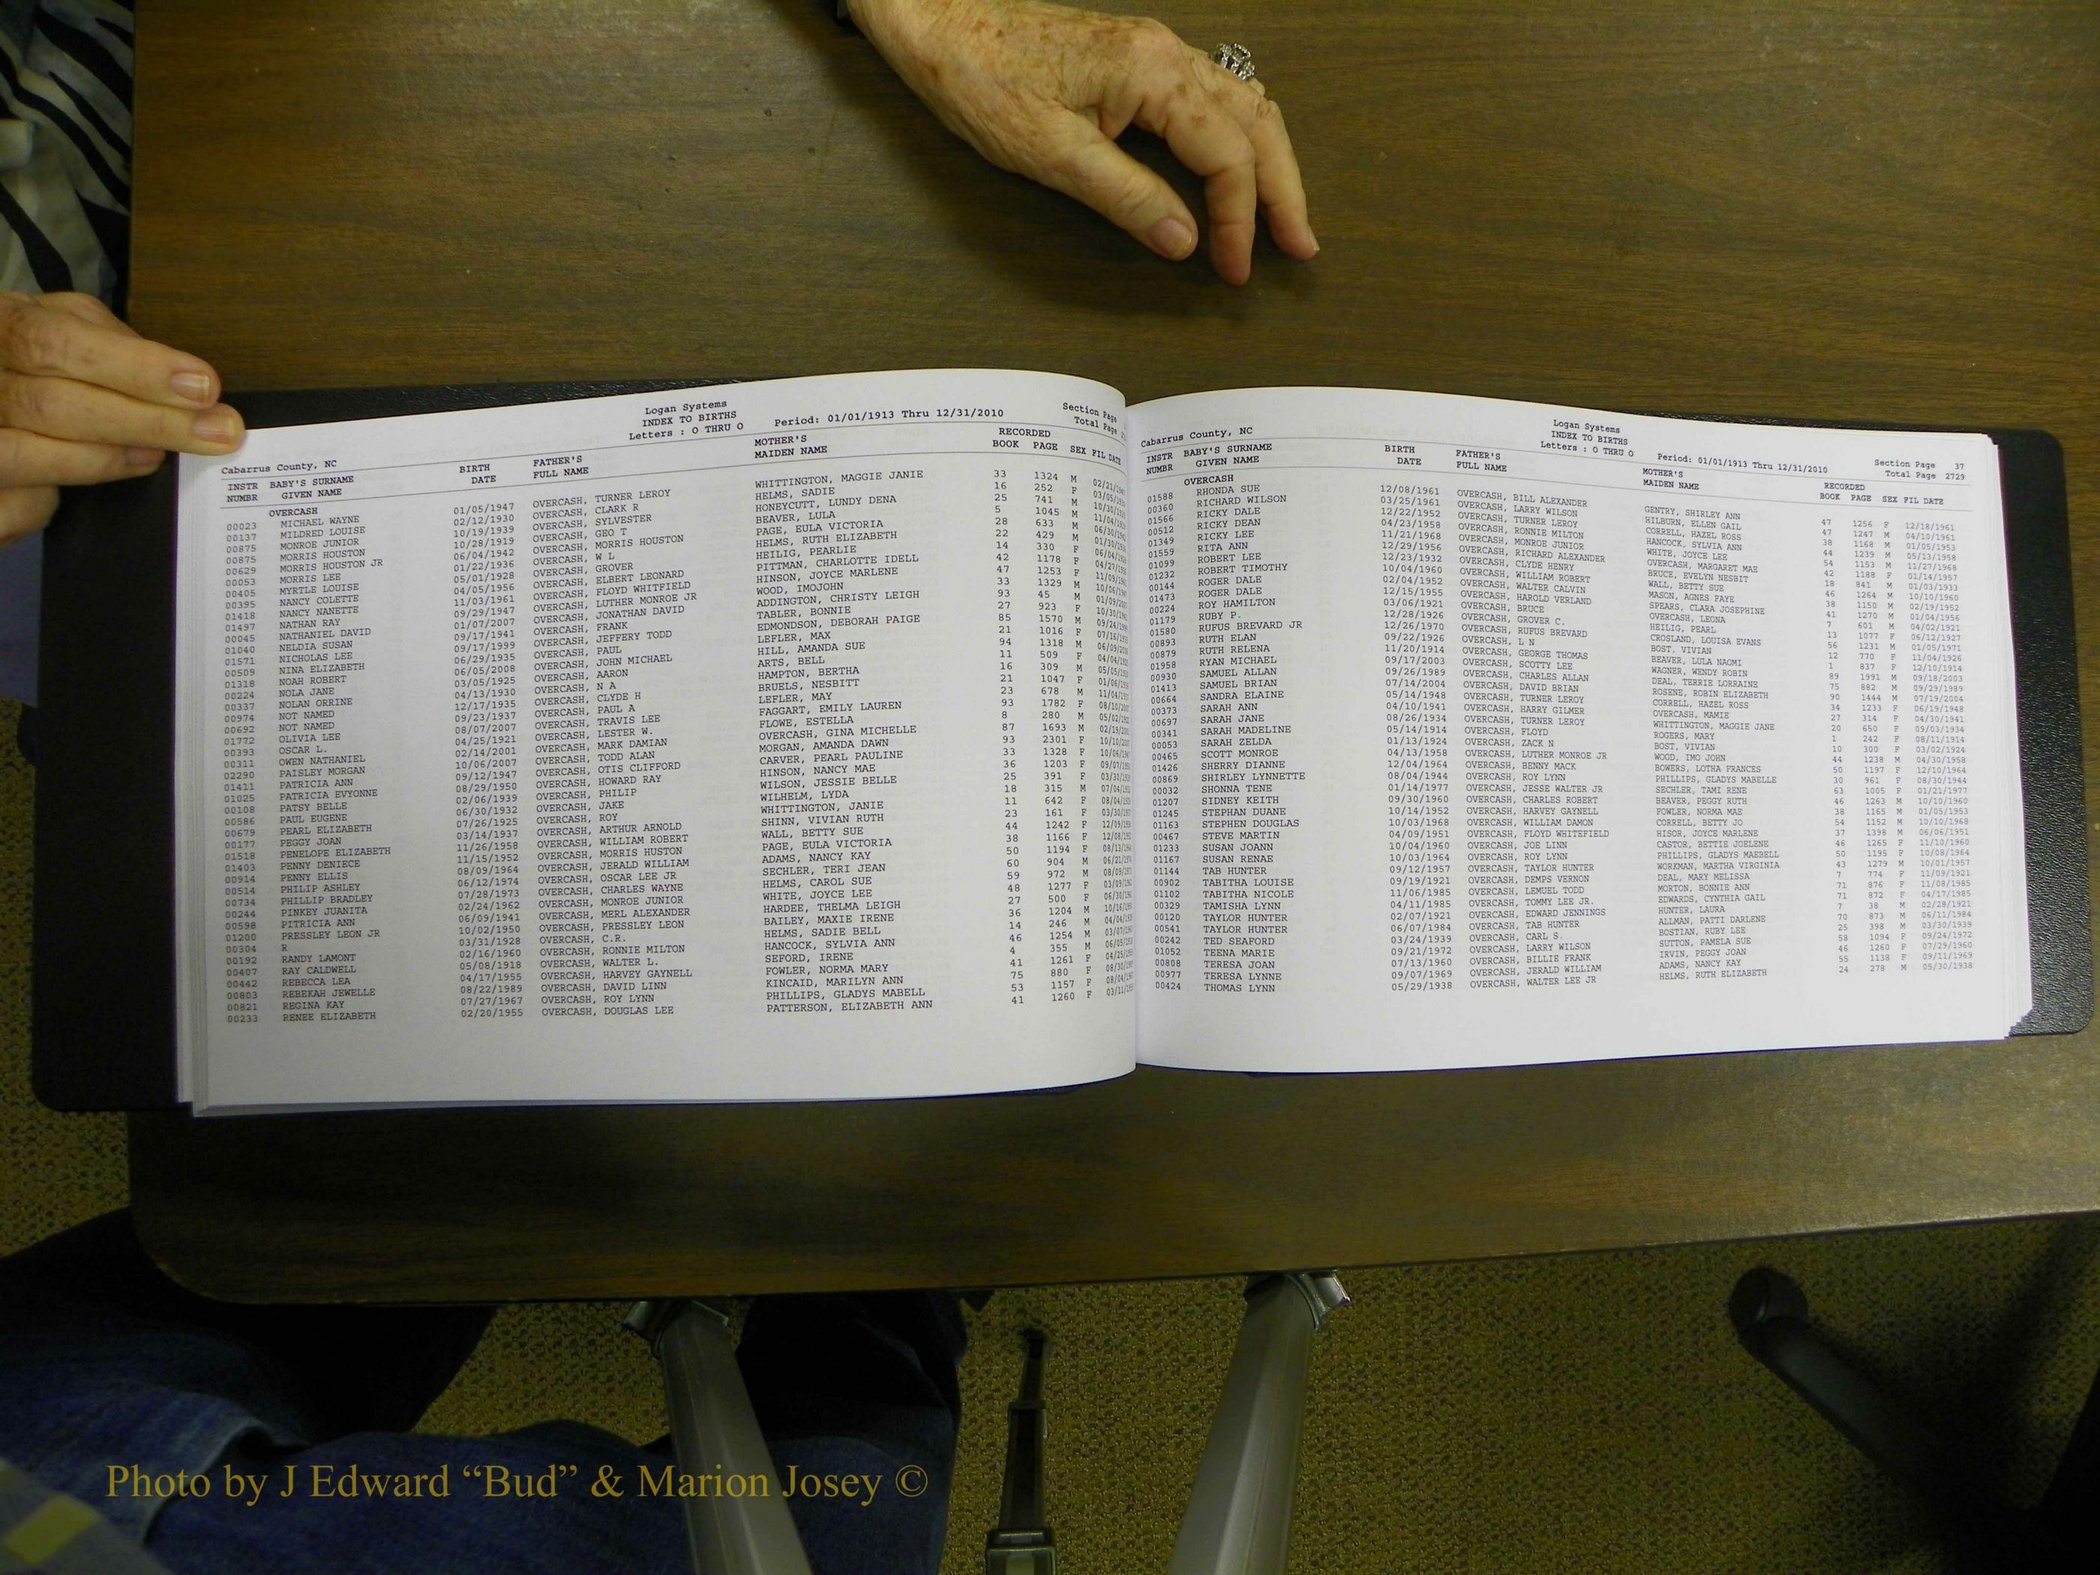 Logan Systems
INDEX TO BIRTHS
Cabarrus County, NC Letters : O THRU O Period: 01/01/1913 Thru 12/31/2010 Section Page
Total Page
INSTR BABY'S SURNAME BIRTH FATHER'S MOTHER'S RECORDED
NUMBR GIVEN NAME DATE FULL NAME MAIDEN NAME BOOK PAGE SEX FIL DATE
OVERCASH
00023 MICHAEL WAYNE 01/05/1947 OVERCASH, TURNER LEROY WHITTINGTON, MAGGIE JANIE 33 1324 M
00137 MILDRED LOUISE 02/12/1930 OVERCASH, CLARK R HELMS, SADIE 16 252 F
00875 MONROE JUNIOR 10/19/1939 OVERCASH, SYLVESTER HONEYCUTT, LUNDY DENA 25 741 M
00875 MORRIS HOUSTON 10/28/1919 OVERCASH, GEO T BEAVER, LULA 5 1045 M
00629 MORRIS HOUSTON JR 06/04/1942 OVERCASH, MORRIS HOUSTON PAGE, EULA VICTORIA 28 633 M
00053 MORRIS LEE 01/22/1936 OVERCASH, W L HELMS, RUTH ELIZABETH 22 429 M
00405 MYRTLE LOUISE 05/01/1928 OVERCASH, GROVER HEILIG, PEARLIE 14 330 F
00395 NANCY COLETTE 04/05/1956 OVERCASH, ELBERT LEONARD PITTMAN, CHARLOTTE IDELL 42 1178 F
01418 NANCY NANETTE 11/03/1961 OVERCASH, FLOYD WHITFIELD HINSON, JOYCE MARLENE 47 1253 F
01497 NATHAN RAY 09/29/1947 OVERCASH, LUTHER MONROE JR WOOD, IMOJOHN 33 1329 M
00045 NATHANIEL DAVID 01/07/2007 OVERCASH, JONATHAN DAVID ADDINGTON, CHRISTY LEIGH 93 45 M
01040 NELDIA SUSAN 09/17/1941 OVERCASH, FRANK TABLER, BONNIE 27 923 F
01571 NICHOLAS LEE 09/17/1999 OVERCASH, JEFFERY TODD EDMONDSON, DEBORAH PAIGE 85 1570 M
00509 NINA ELIZABETH 06/29/1935 OVERCASH, PAUL LEFLER, MAX 21 1016 F
01318 NOAH ROBERT 06/05/2008 OVERCASH, JOHN MICHAEL HILL, AMANDA SUE 94 1318 M
00224 NOLA JANE 03/05/1925 OVERCASH, AARON ARTS, BELL 11 509 F
00337 NOLAN ORRINE 04/13/1930 OVERCASH, N A HAMPTON, BERTHA 16 309 M
00974 NOT NAMED 12/17/1935 OVERCASH, CLYDE H BRUELS, NESBITT 21 1047 F
00692 NOT NAMED 09/23/1937 OVERCASH, PAUL A LEFLER, MAY 23 678 M
01772 OLIVIA LEE 08/07/2007 OVERCASH, TRAVIS LEE FAGGART, EMILY LAUREN 93 1782 F
00393 OSCAR L. 04/25/1921 OVERCASH, LESTER W. FLOWE, ESTELLA 8 280 M
00311 OWEN NATHANIEL 02/14/2001 OVERCASH, MARK DAMIAN OVERCASH, GINA MICHELLE 87 1693 M
02290 PAISLEY MORGAN 10/06/2007 OVERCASH, TODD ALAN MORGAN, AMANDA DAWN 93 2301 F
01411 PATRICIA ANN 09/12/1947 OVERCASH, OTIS CLIFFORD CARVER, PEARL PAULINE 33 1328 F
01025 PATRICIA EVYONNE 08/29/1950 OVERCASH, HOWARD RAY HINSON, NANCY MAE 36 1203 F
00108 PATSY BELLE 02/06/1939 OVERCASH, PHILIP WILSON, JESSIE BELLE 25 391 F
00586 PAUL EUGENE 06/30/1932 OVERCASH, JAKE WILHELM, LYDA 18 315 M
00679 PEARL ELIZABETH 07/26/1925 OVERCASH, ROY WHITTINGTON, JANIE 11 642 F
00177 PEGGY JOAN 03/14/1937 OVERCASH, ARTHUR ARNOLD SHINN, VIVIAN RUTH 23 161 F
01518 PENELOPE ELIZABETH 11/26/1958 OVERCASH, WILLIAM ROBERT WALL, BETTY SUE 44 1242 F
01403 PENNY DENIECE 11/15/1952 OVERCASH, MORRIS HUSTON PAGE, EULA VICTORIA 38 1166 F
00914 PENNY ELLIS 08/09/1964 OVERCASH, JERALD WILLIAM ADAMS, NANCY KAY 50 1194 F
00514 PHILIP ASHLEY 06/12/1974 OVERCASH, OSCAR LEE JR SECHLER, TERI JEAN 60 904 M
00734 PHILLIP BRADLEY 07/28/1973 OVERCASH, CHARLES WAYNE HELMS, CAROL SUE 59 972 M
00244 PINKEY JUANITA 02/24/1962 OVERCASH, MONROE JUNIOR WHITE, JOYCE LEE 48 1277 F
00598 PITRICIA ANN 06/09/1941 OVERCASH, MERL ALEXANDER HARDEE, THELMA LEIGH 27 500 F
01200 PRESSLEY LEON JR 10/02/1950 OVERCASH, PRESSLEY LEON BAILEY, MAXIE IRENE 36 1204 M
00304 R 03/31/1928 OVERCASH, C.R. HELMS, SADIE BELL 14 246 M
00192 RANDY LAMONT 02/16/1960 OVERCASH, RONNIE MILTON HANCOCK, SYLVIA ANN 46 1254 M
00407 RAY CALDWELL 05/08/1918 OVERCASH, WALTER L. SEFORD, IRENE 4 355 M
00442 REBECCA LEA 04/17/1955 OVERCASH, HARVEY GAYNELL FOWLER, NORMA MARY 41 1261 F
00803 REBEKAH JEWELLE 08/22/1989 OVERCASH, DAVID LINN KINCAID, MARILYN ANN 75 880 F
00821 REGINA KAY 07/27/1967 OVERCASH, ROY LYNN PHILLIPS, GLADYS MABELL 53 1157 F
00233 RENEE ELIZABETH 02/20/1955 OVERCASH, DOUGLAS LEE PATTERSON, ELIZABETH ANN 41 1260 F
Logan Systems
INDEX TO BIRTHS
Cabarrus County, NC Letters : O THRU O Period: 01/01/1913 Thru 12/31/2010 Section Page 37
Total Page 2729
INSTR BABY'S SURNAME BIRTH FATHER'S MOTHER'S RECORDED
NUMBR GIVEN NAME DATE FULL NAME MAIDEN NAME BOOK PAGE SEX FIL DATE
OVERCASH
01588 RHONDA SUE 12/08/1961 OVERCASH, BILL ALEXANDER GENTRY, SHIRLEY ANN 47 1256 F 12/18/1961
00360 RICHARD WILSON 03/25/1961 OVERCASH, LARRY WILSON HILBURN, ELLEN GAIL 47 1247 M 04/10/1961
01566 RICKY DALE 12/22/1952 OVERCASH, TURNER LEROY CORRELL, HAZEL ROSS 38 1168 M 01/05/1953
00512 RICKY DEAN 04/23/1958 OVERCASH, RONNIE MILTON HANCOCK, SYLVIA ANN 44 1239 M 05/13/1958
01349 RICKY LEE 11/21/1968 OVERCASH, MONROE JUNIOR WHITE, JOYCE LEE 54 1153 M 11/27/1968
01559 RITA ANN 12/29/1956 OVERCASH, RICHARD ALEXANDER OVERCASH, MARGARET MAE 42 1188 F 01/14/1957
01099 ROBERT LEE 12/23/1932 OVERCASH, CLYDE HENRY BRUCE, EVELYN NESBIT 18 841 M 01/03/1933
01232 ROBERT TIMOTHY 10/04/1960 OVERCASH, WILLIAM ROBERT WALL, BETTY SUE 46 1264 M 10/10/1960
00144 ROGER DALE 02/04/1952 OVERCASH, WALTER CALVIN MASON, AGNES FAYE 38 1150 M 02/19/1952
01473 ROGER DALE 12/15/1955 OVERCASH, HAROLD VERLAND SPEARS, CLARA JOSEPHINE 41 1270 M 01/04/1956
00224 ROY HAMILTON 03/06/1921 OVERCASH, BRUCE OVERCASH, LEONA 7 601 M 04/02/1921
01179 RUBY P. 12/28/1926 OVERCASH, GROVER C. HEILIG, PEARL 13 1077 F 06/12/1927
01580 RUFUS BREVARD JR 12/26/1970 OVERCASH, RUFUS BREVARD CROSLAND, LOUISA EVANS 56 1231 M 01/05/1971
00893 RUTH ELAN 09/22/1926 OVERCASH, L N BOST, VIVIAN 12 770 F 11/04/1926
00879 RUTH RELENA 11/20/1914 OVERCASH, GEORGE THOMAS BEAVER, LULA NAOMI 1 837 F 12/10/1914
01958 RYAN MICHAEL 09/17/2003 OVERCASH, SCOTTY LEE WAGNER, WENDY ROBIN 89 1991 M 09/18/2003
00930 SAMUEL ALLAN 09/26/1989 OVERCASH, CHARLES ALLAN DEAL, TERRIE LORRAINE 75 882 M 09/29/1989
01413 SAMUEL BRIAN 07/14/2004 OVERCASH, DAVID BRIAN ROSENE, ROBIN ELIZABETH 90 1444 M 07/19/2004
00664 SANDRA ELAINE 05/14/1948 OVERCASH, TURNER LEROY CORRELL, HAZEL ROSS 34 1233 F 06/19/1948
00373 SARAH ANN 04/10/1941 OVERCASH, HARRY GILMER OVERCASH, MAMIE 27 314 F 04/30/1941
00697 SARAH JANE 08/26/1934 OVERCASH, TURNER LEROY WHITTINGTON, MAGGIE JANE 20 650 F 09/03/1934
00341 SARAH MADELINE 05/14/1914 OVERCASH, FLOYD ROGERS, MARY 1 242 F 08/11/1914
00053 SARAH ZELDA 01/13/1924 OVERCASH, ZACK N BOST, VIVIAN 10 300 F 03/02/1924
00465 SCOTT MONROE 04/13/1958 OVERCASH, LUTHER MONROE JR WOOD, IMO JOHN 44 1238 M 04/30/1958
01426 SHERRY DIANNE 12/04/1964 OVERCASH, BENNY MACK BOWERS, LOTHA FRANCES 50 1197 F 12/10/1964
00869 SHIRLEY LYNNETTE 08/04/1944 OVERCASH, ROY LYNN PHILLIPS, GLADYS MABELLE 30 961 F 08/30/1944
00032 SHONNA TENE 01/14/1977 OVERCASH, JESSE WALTER JR SECHLER, TAMI RENE 63 1005 F 01/21/1977
01207 SIDNEY KEITH 09/30/1960 OVERCASH, CHARLES ROBERT BEAVER, PEGGY RUTH 46 1263 M 10/10/1960
01245 STEPHAN DUANE 10/14/1952 OVERCASH, HARVEY GAYNELL FOWLER, NORMA MAE 38 1165 M 01/05/1953
01163 STEPHEN DOUGLAS 10/03/1968 OVERCASH, WILLIAM DAMON CORRELL, BETTY JO 54 1152 M 10/10/1968
00467 STEVE MARTIN 04/09/1951 OVERCASH, FLOYD WHITEFIELD HISOR, JOYCE MARLENE 37 1398 M 06/06/1951
01233 SUSAN JOANN 10/04/1960 OVERCASH, JOE LINN CASTOR, BETTIE JOELENE 46 1265 F 11/10/1960
01167 SUSAN RENAE 10/03/1964 OVERCASH, ROY LYNN PHILLIPS, GLADYS MAEBELL 50 1195 F 10/08/1964
01144 TAB HUNTER 09/12/1957 OVERCASH, TAYLOR HUNTER WORKMAN, MARTHA VIRGINIA 43 1279 M 10/01/1957
00902 TABITHA LOUISE 09/19/1921 OVERCASH, DEMPS VERNON DEAL, MARY MELISSA 7 774 F 11/09/1921
01102 TABITHA NICOLE 11/06/1985 OVERCASH, LEMUEL TODD MORTON, BONNIE ANN 71 876 F 11/08/1985
00329 TAMISHA LYNN 04/11/1985 OVERCASH, TOMMY LEE JR. EDWARDS, CYNTHIA GAIL 71 872 F 04/17/1985
00120 TAYLOR HUNTER 02/07/1921 OVERCASH, EDWARD JENNINGS HUNTER, LAURA 7 38 M 02/28/1921
00541 TAYLOR HUNTER 06/07/1984 OVERCASH, TAB HUNTER ALLMAN, PATTI DARLENE 70 873 M 06/11/1984
00242 TED SEAFORD 03/24/1939 OVERCASH, CARL S. BOSTIAN, RUBY LEE 25 398 M 03/30/1939
01052 TEENA MARIE 09/21/1972 OVERCASH, LARRY WILSON SUTTON, PAMELA SUE 58 1094 F 09/24/1972
00808 TERESA JOAN 07/13/1960 OVERCASH, BILLIE FRANK IRVIN, PEGGY JOAN 46 1260 F 07/29/1960
00977 TERESA LYNNE 09/07/1969 OVERCASH, JERALD WILLIAM ADAMS, NANCY KAY 55 1138 F 09/11/1969
00424 THOMAS LYNN 05/29/1938 OVERCASH, WALTER LEE JR HELMS, RUTH ELIZABETH 24 278 M 05/30/1938
Photo by J Edward “Bud” & Marion Josey ©